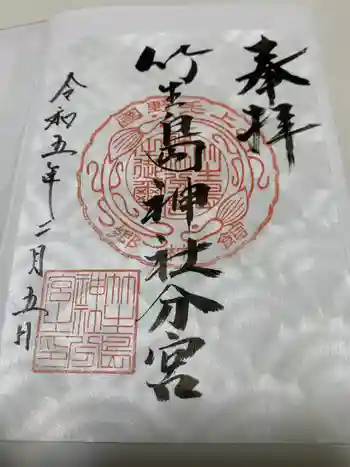 奉拝
竹生島神社分宮
令和五年二月五日
竹生島
神社分
宮之印